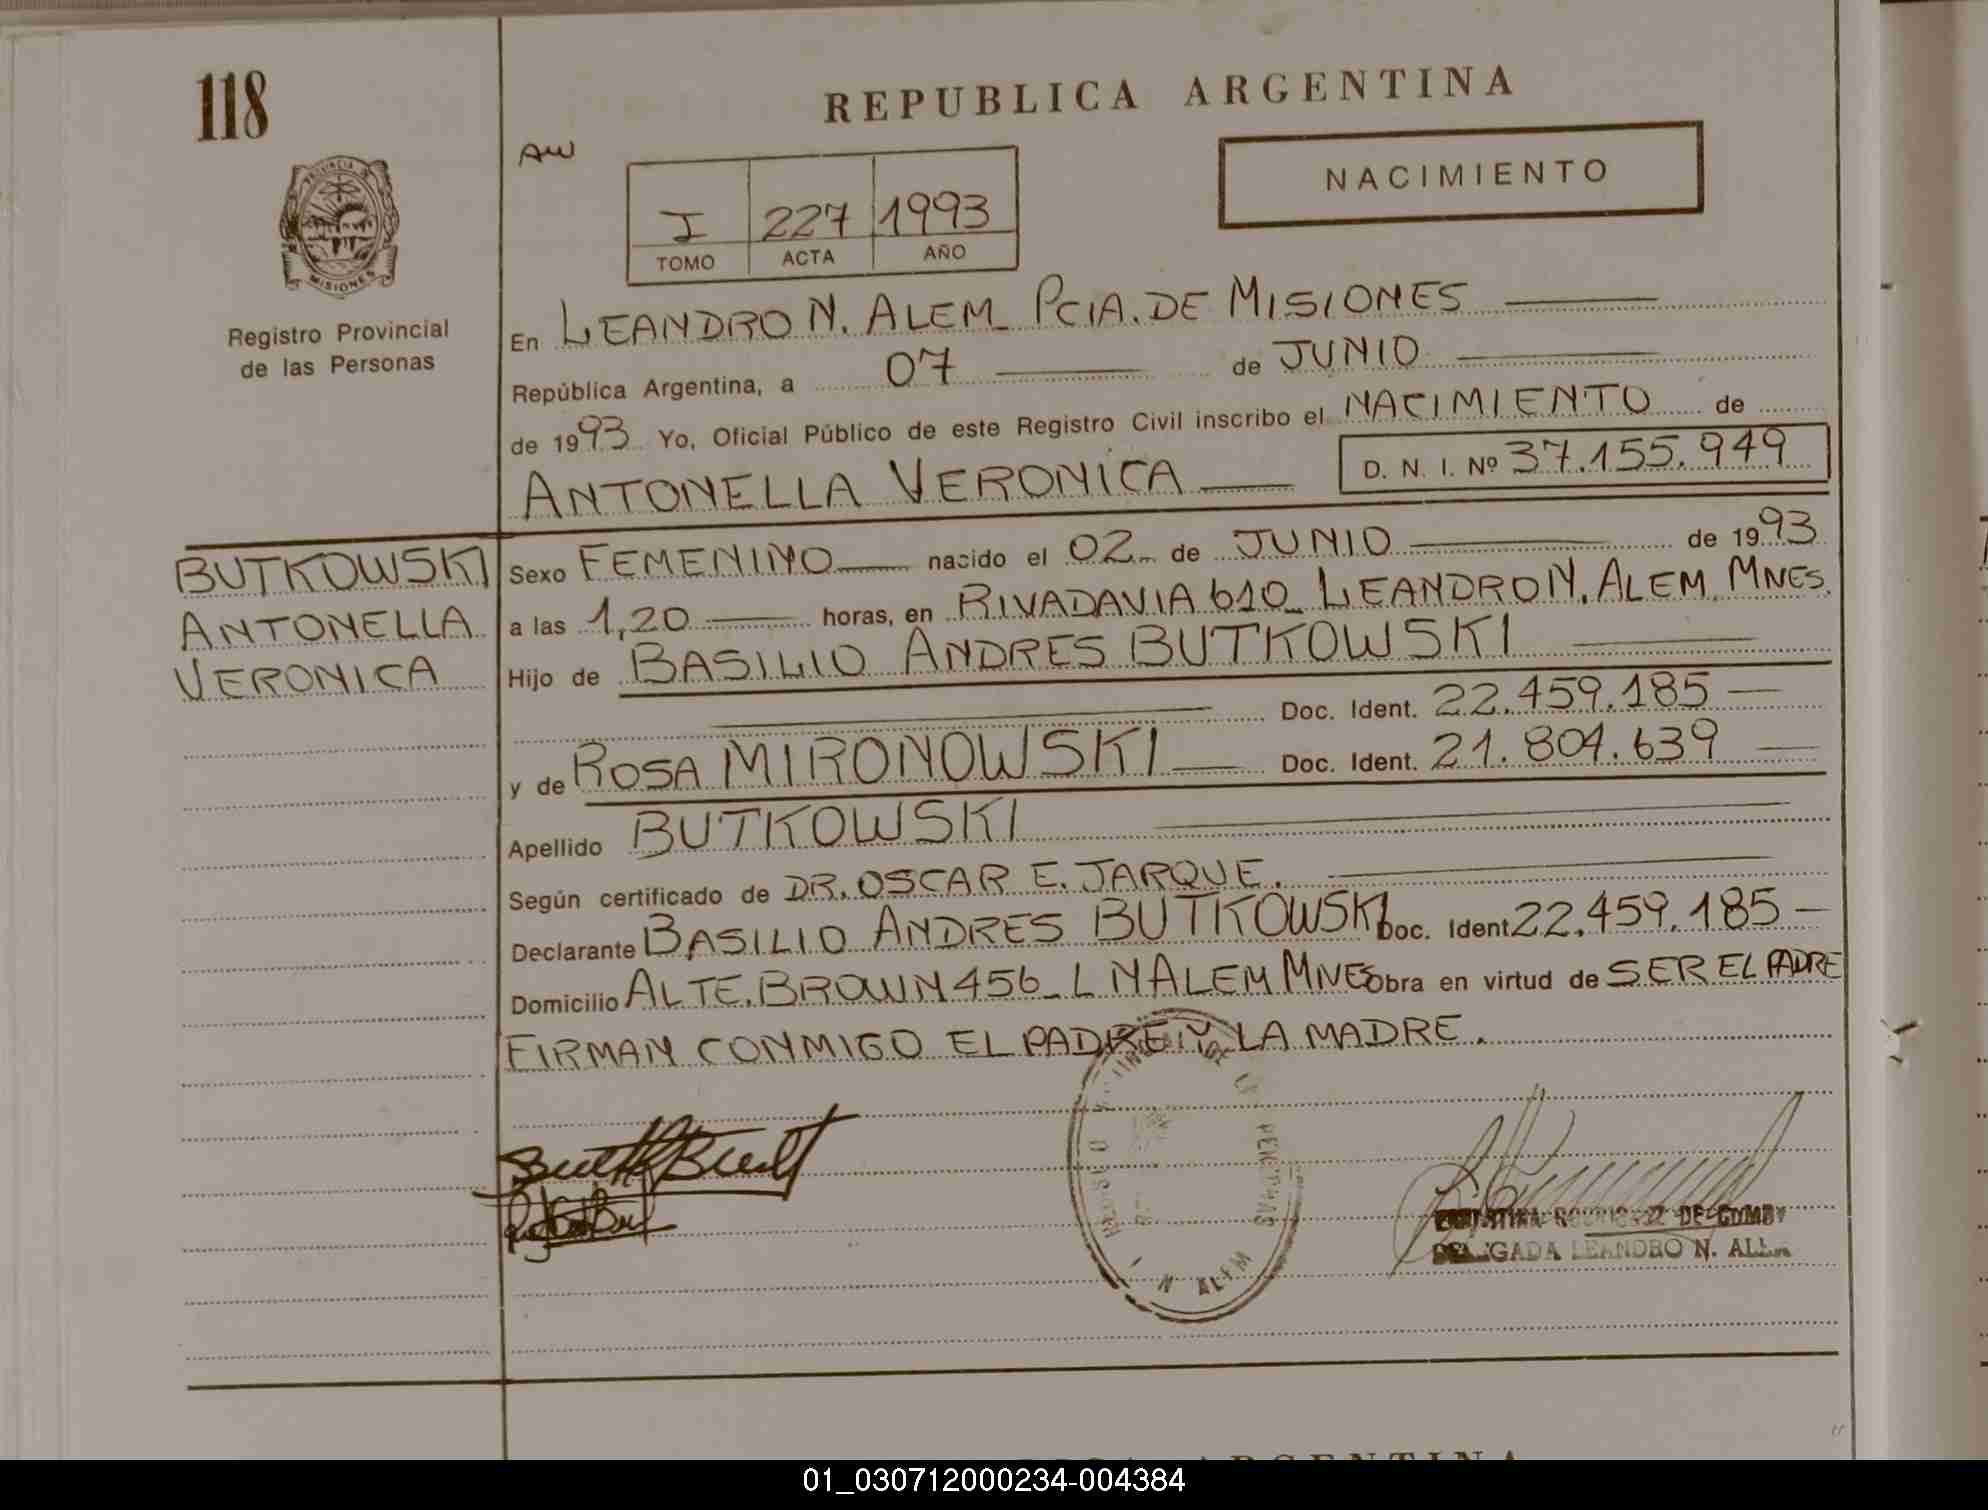 118
REPUBLICA ARGENTINA
AW
NACIMIENTO
I 227 1993
TOMO ACTA AÑO
PROVINCIA DE
MISIONES
Registro Provincial
de las Personas
En LEANDRO N. ALEM_ PCIA. DE MISIONES
República Argentina, a 07 de JUNIO
de 1993 Yo, Oficial Público de este Registro Civil inscribo el NACIMIENTO de
ANTONELLA VERONICA D. N. I. Nº 37.155.949
BUTKOWSKI
ANTONELLA
VERONICA
Sexo FEMENINO nacido el 02 de JUNIO de 1993
a las 1,20 horas, en RIVADAVIA 610_ LEANDRO N. ALEM. MNES.
Hijo de BASILIO ANDRES BUTKOWSKI
Doc. Ident. 22.459.185
y de ROSA MIRONOWSKI Doc. Ident. 21.804.639
Apellido BUTKOWSKI
Según certificado de DR. OSCAR E. JARQUE.
Declarante BASILIO ANDRES BUTKOWSKI Doc. Ident 22.459.185
Domicilio ALTE. BROWN 456_ L N ALEM MNES Obra en virtud de SER EL PADRE
FIRMAN CONMIGO EL PADRE Y LA MADRE.
DE
N ALEM
DE
LEANDRO N.
01_030712000234-004384